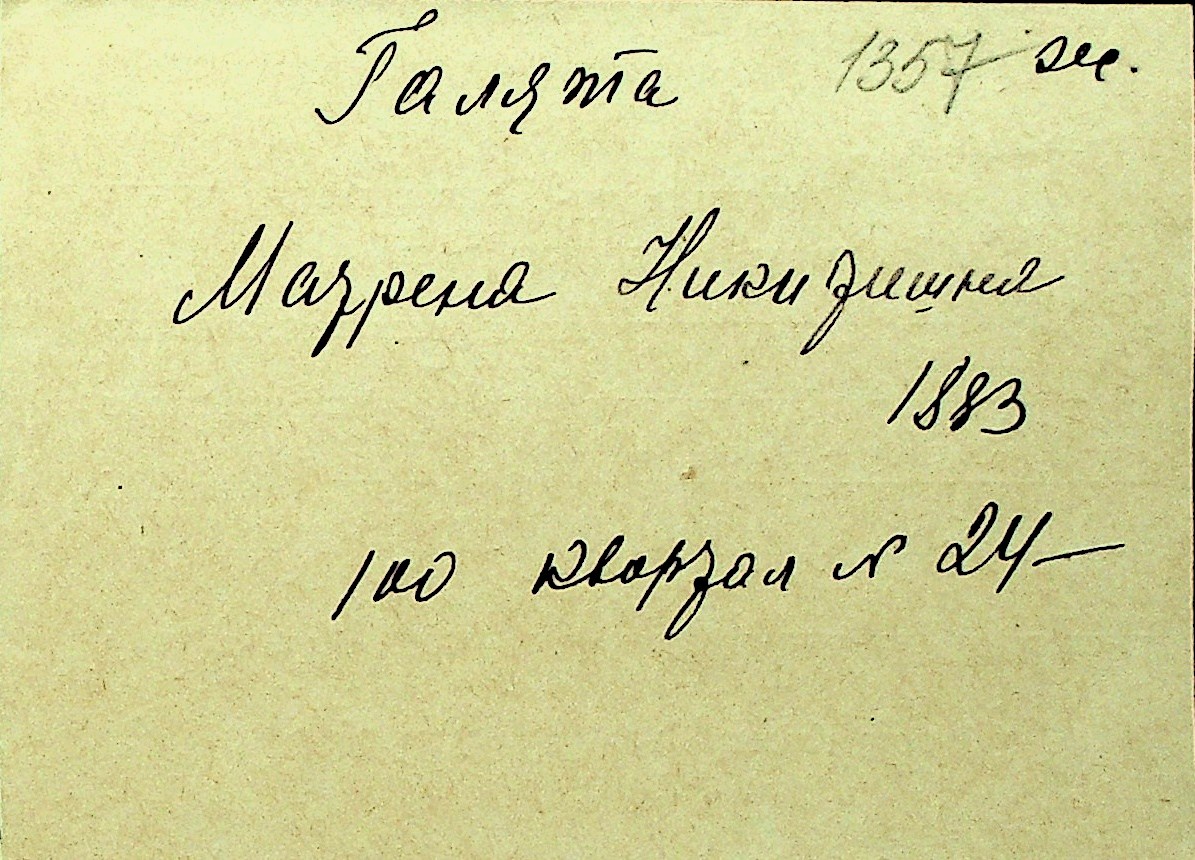 Галята 1357 ж.
Матрена Никитишна
1883
100 квартал № 24